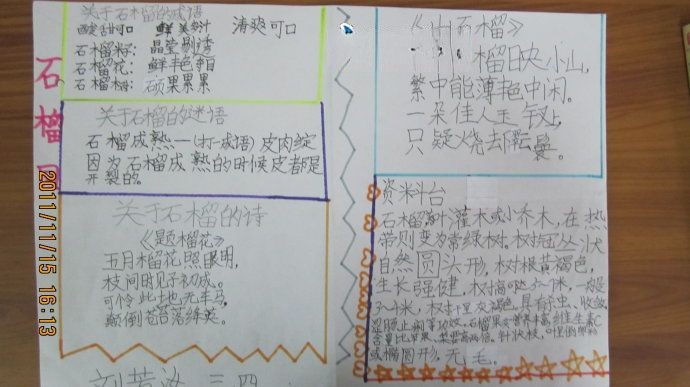 石榴
关于石榴的成语
酸甜可口 鲜美多汁 清爽可口
石榴籽: 晶莹剔透
石榴花: 鲜丰色
石榴树: 硕果累累
关于石榴的谜语
石榴成熟一(打一成语)皮肉绽
因为石榴成熟的时候皮都是
开裂的。
关于石榴的诗
《题榴花》
五月榴花照眼明,
枝间时见子初成。
可怜此地无车马,
颠倒苍苔落绛英。
刘 三四
《山石榴》
榴映小山,
繁中能薄艳中闲。
一朵佳人玉钗上,
只疑烧却翠鬟。
资料台
石榴 灌木或小乔木,在热
带则变为常绿树。树冠丛状
自然圆头形,树根黄褐色,
生长强健,树高 一般
3-4米,树干呈灰褐色, 具有杀虫、收敛、
止痢等功效。石榴果 营养丰富,维生素C
含量比苹果、梨要高 倍。针状枝,叶呈倒卵形
或椭圆形,无毛。
2011/11/15 16:13